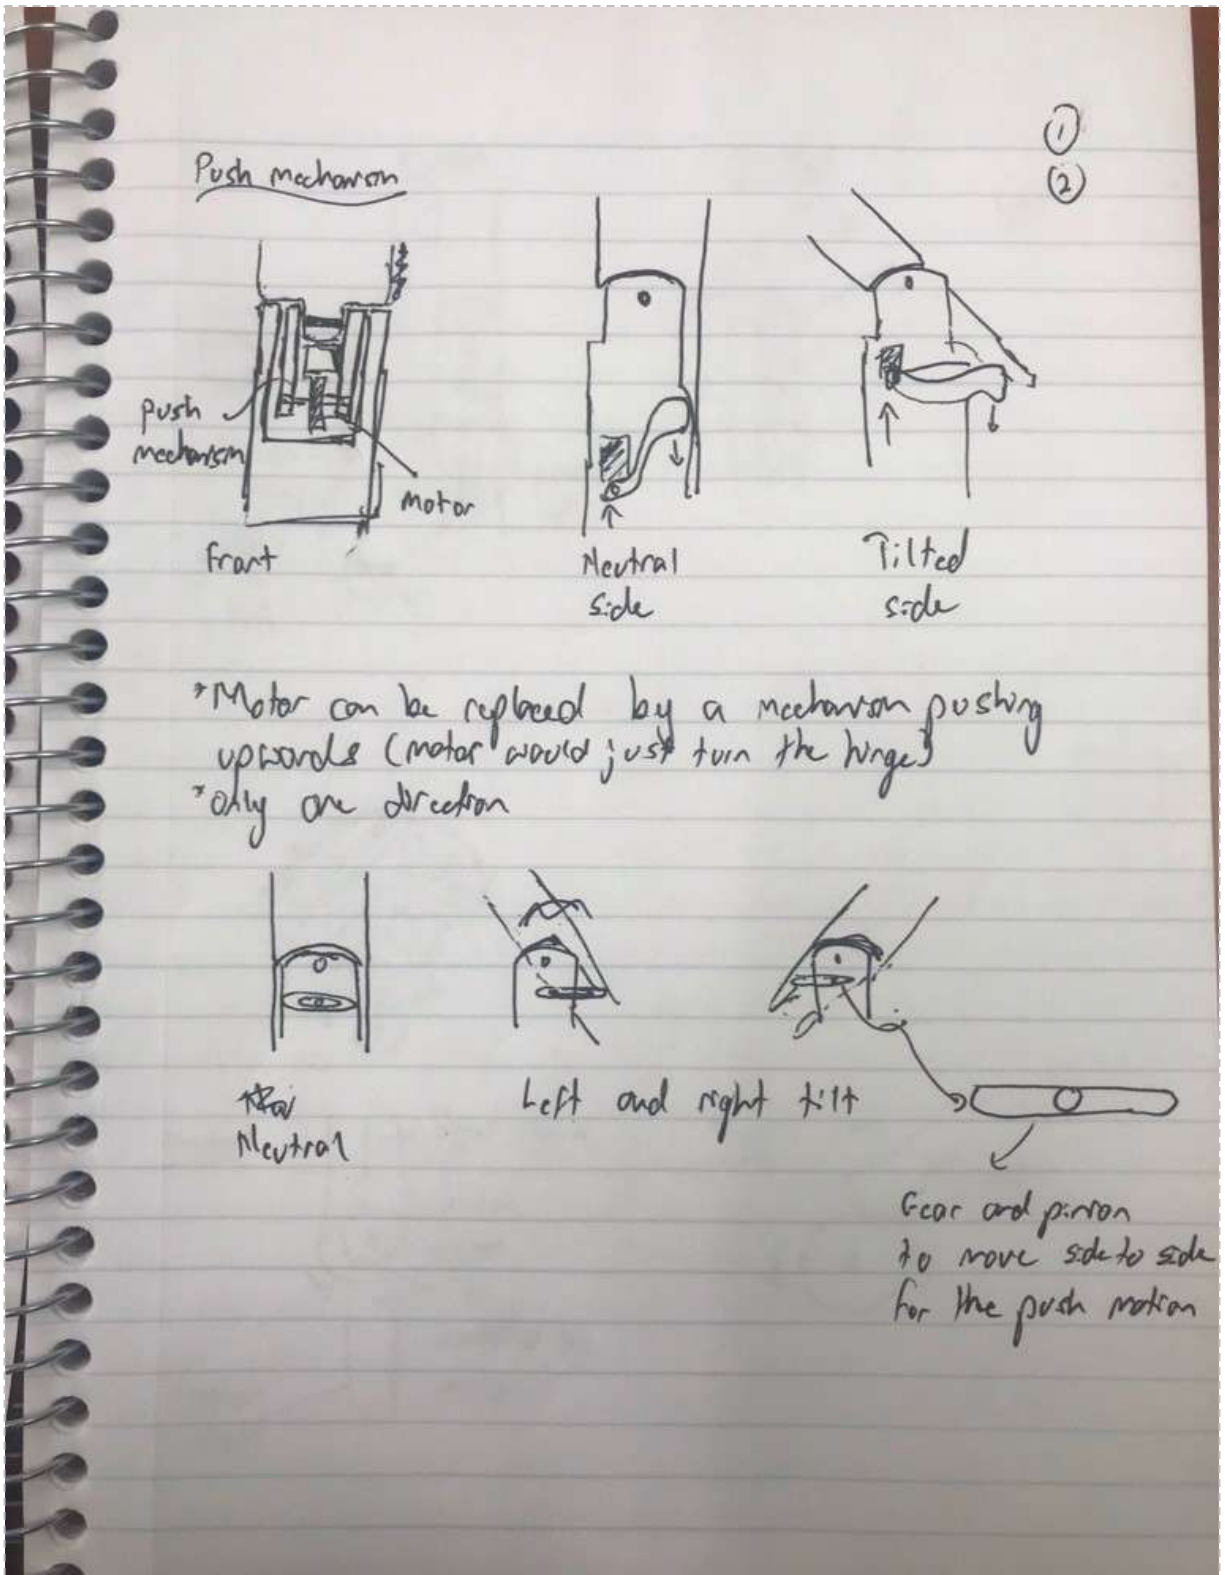 ①
②
Push mechanism
push
mechanism
motor
Front
Neutral
side
Tilted
side
*Motor can be replaced by a mechanism pushing
upwards (motor would just turn the hinge)
*only one direction
Neutral
Left and right tilt
Gear and pinion
to move side to side
for the push motion